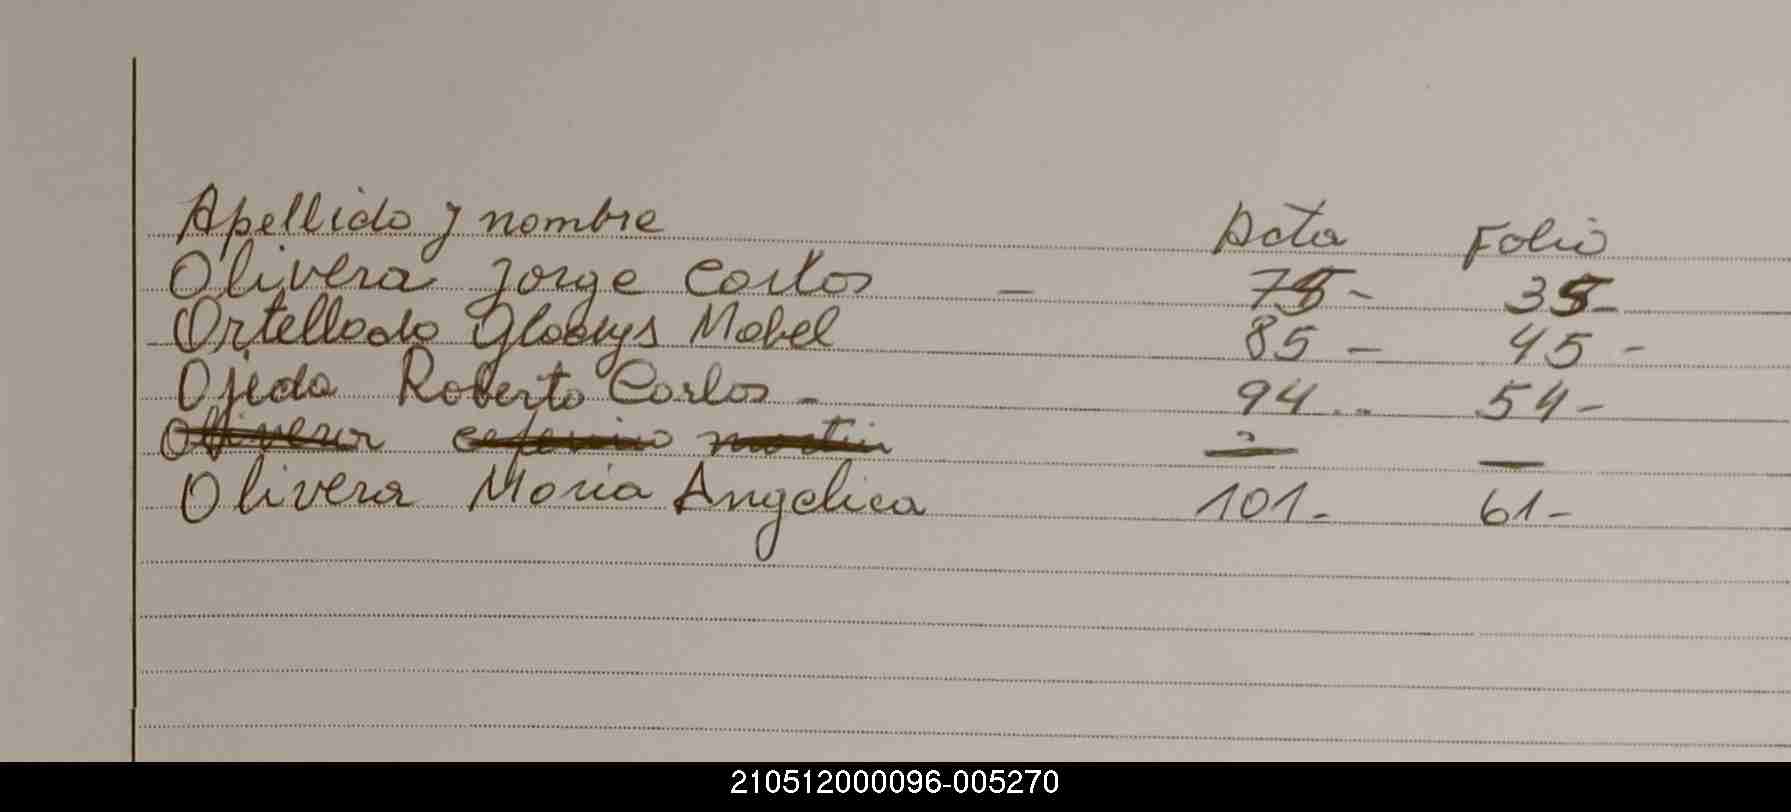 Apellido y nombre Acta Folio
Olivera Jorge Carlos - 75- 35-
Ortellado Gladys Mabel 85- 45-
Ojeda Roberto Carlos - 94.. 54-
Olivera ceferino martin - -
Olivera Maria Angelica 101- 61-
210512000096-005270